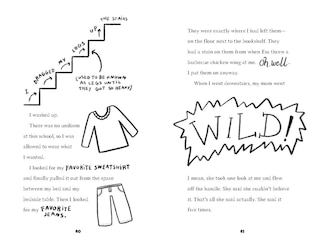 THE STAIRS
UP
LEGS
MY
DRAGGED
I
(USED TO BE KNOWN
AS LEGS UNTIL
THEY GOT SO HEAVY)
I washed up.
There was no uniform
at this school, so I was
allowed to wear what
I wanted.
I looked for my FAVORITE SWEATSHIRT
and finally pulled it out from the space
between my bed and my
bedside table. Then I looked
for my FAVORITE
JEANS.
40
They were exactly where I had left them—
on the floor next to the bookshelf. They
had a stain on them from when Em threw a
barbecue chicken wing at me. Oh well.
I put them on anyway.
When I went downstairs, my mom went
WILD!
I mean, she took one look at me and flew
off the handle. She said she couldn't believe
it. That's all she said actually. She said it
five times.
41